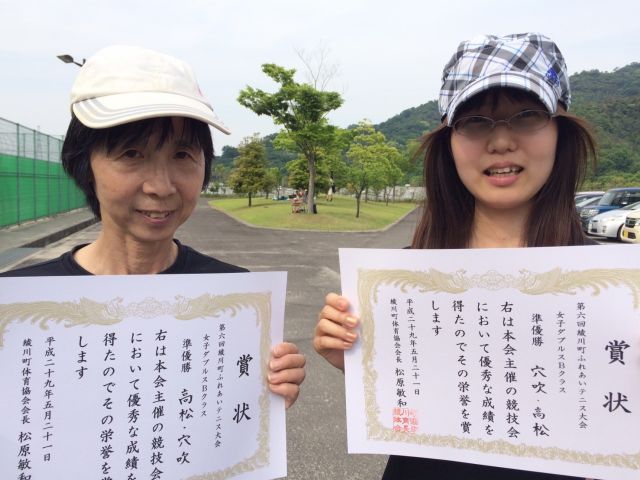 賞状
第六回綾川町ふれあいテニス大会
女子ダブルスBクラス
準優勝 高松・穴吹
右は本会主催の競技会
において優秀な成績を
得たのでその栄誉を賞
します
平成二十九年五月二十一日
綾川町体育協会会長 松原敏和
賞状
第六回綾川町ふれあいテニス大会
女子ダブルスBクラス
準優勝 穴吹・高松
右は本会主催の競技会
において優秀な成績を
得たのでその栄誉を賞
します
平成二十九年五月二十一日
綾川町体育協会会長 松原敏和